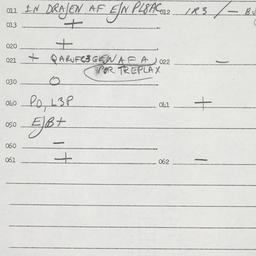 011 IN DRAJEN AF EJN PL8AC 012 1R3 / - B
013 +
020 +
021 + QARUFC3GEWAFA) 022 -
POR TREPLAX
030 O
040 PO, L3P 041 +
050 EJB+
060 -
061 + 062 -